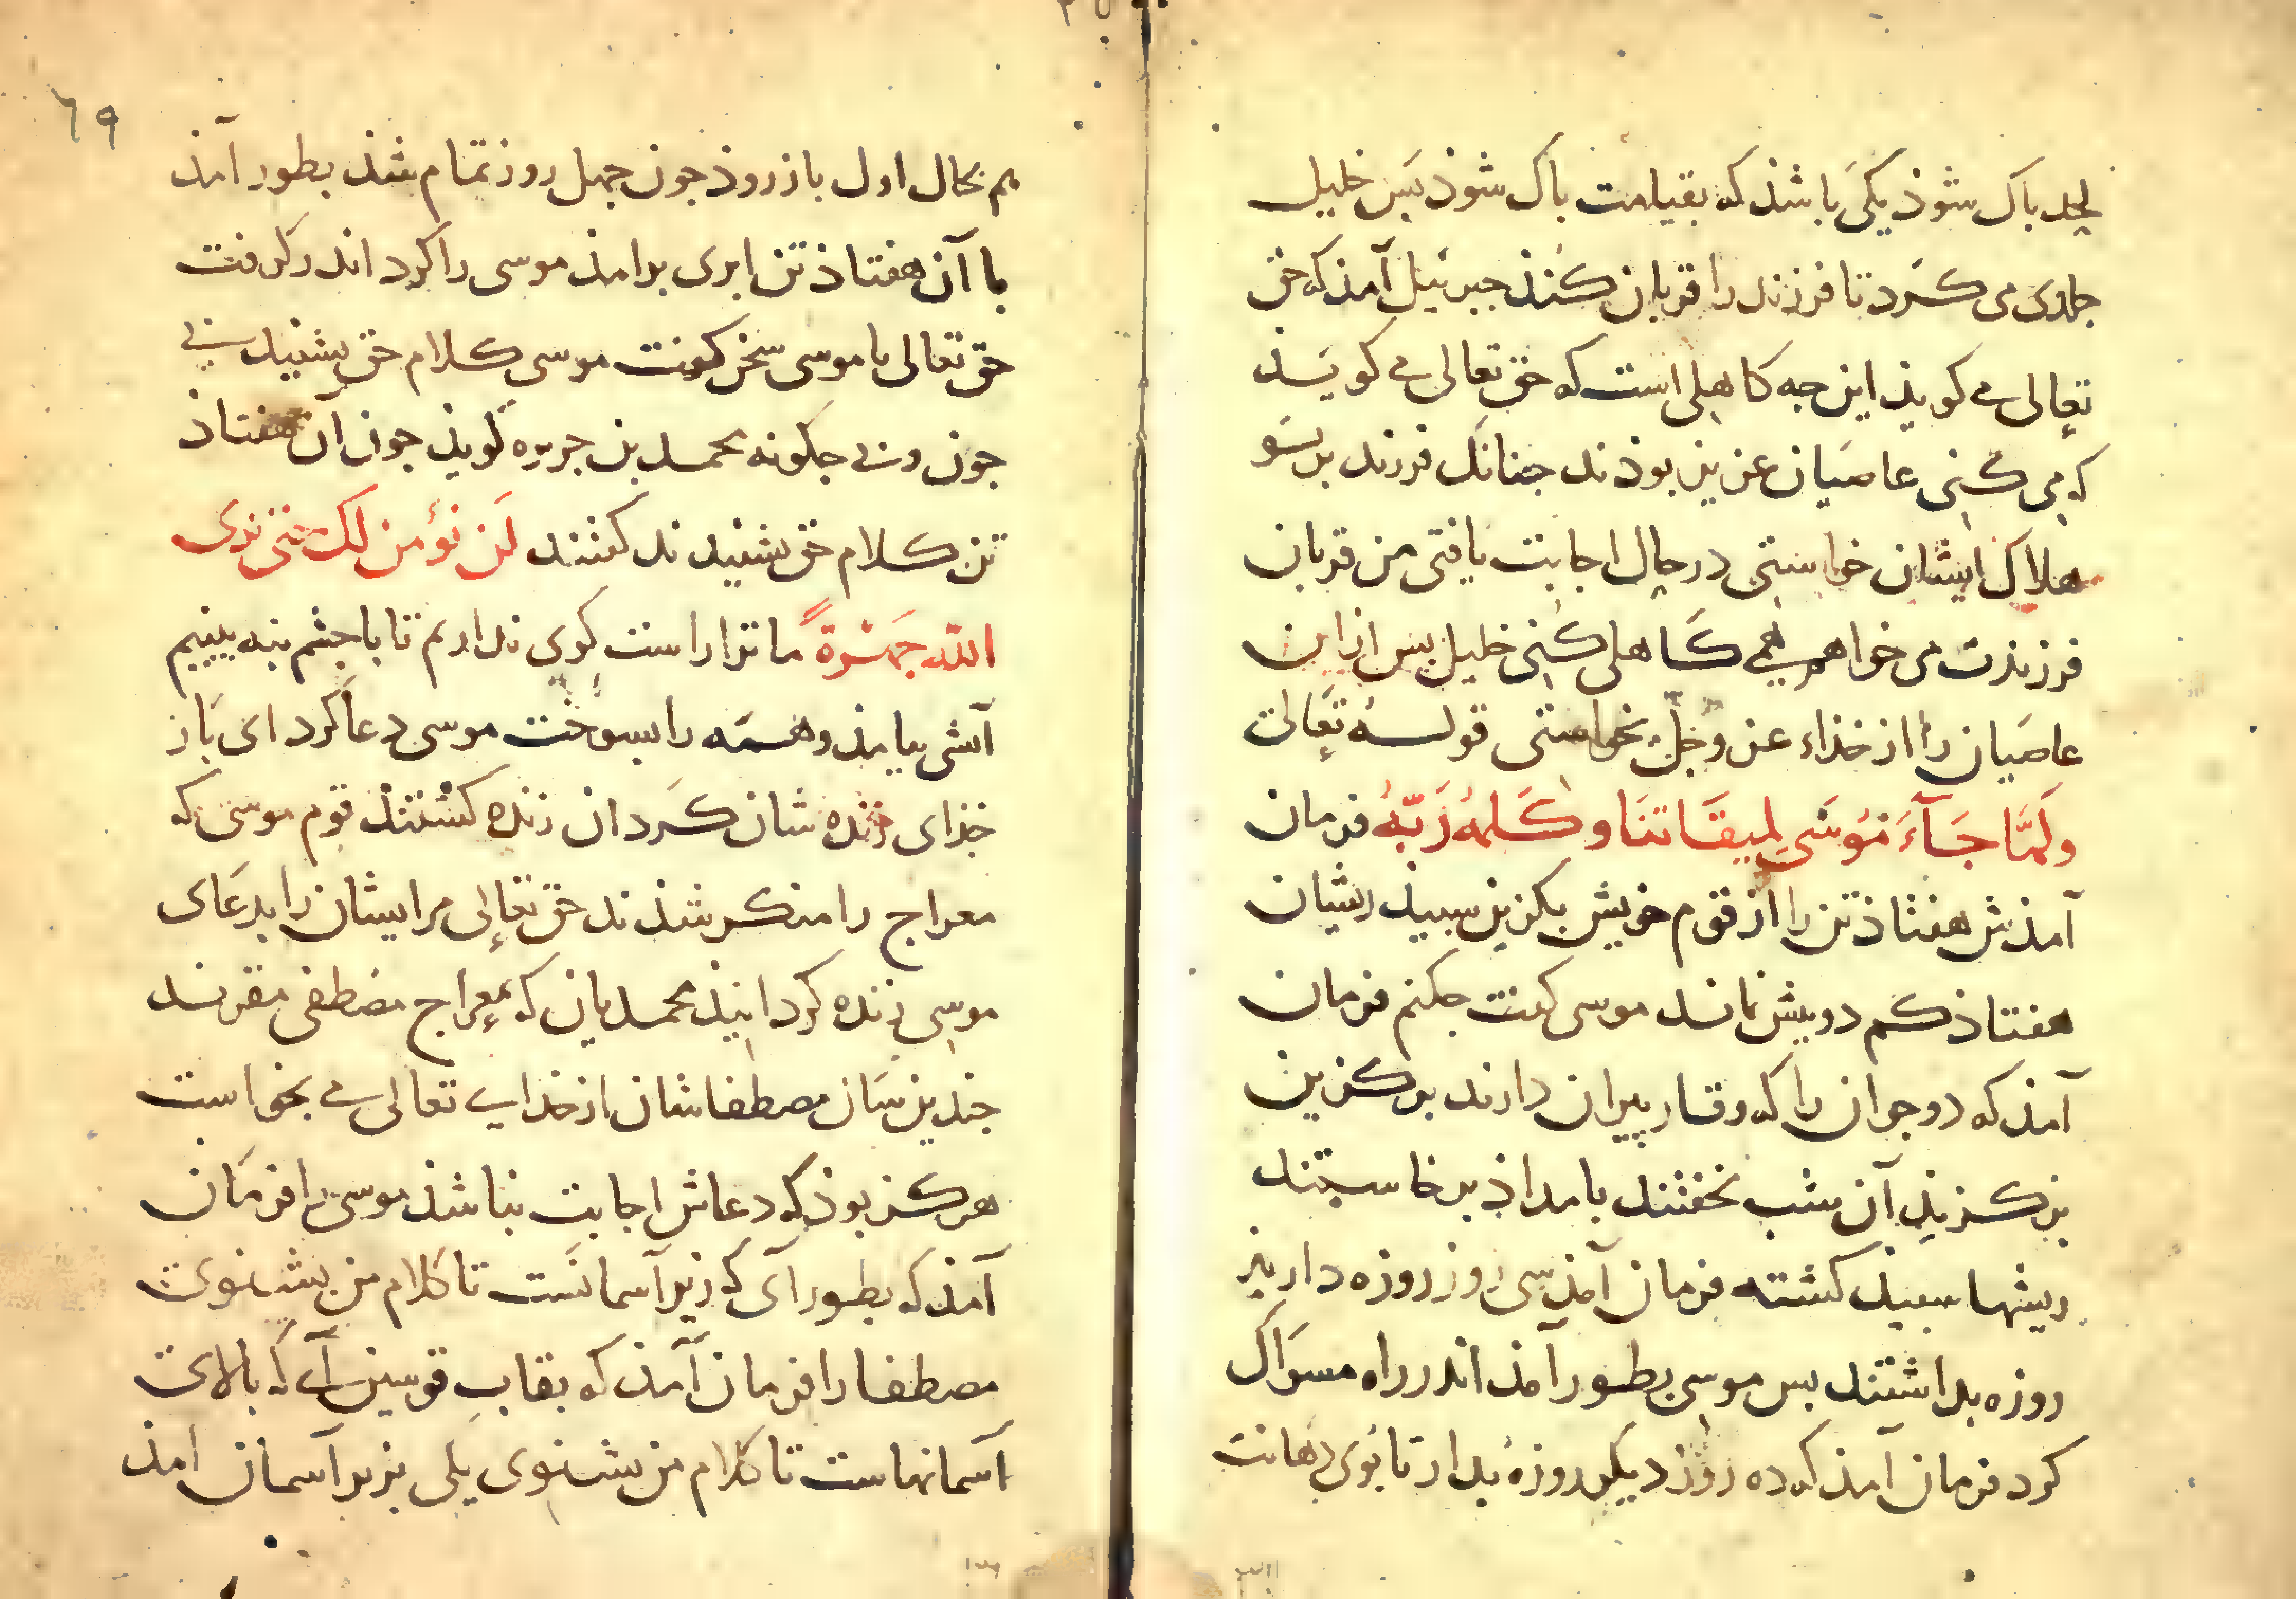 بلحد باک شوذ یکی باشذ که بقیامت باک شوذ بس خلیل
جلدی می کرد تا فرزند را قربان کنذ جبرئیل آمذ که حق
تعالی می کویذ این جه کاهلی است که حق تعالی می کویذ
که می کنی عاصیان عزیز بوذند جنانک فرزند بر تو
هلاک ایشان خواستی در حال اجابت یافتی من قربان
فرزندت می خواهم همی کاهلی کنی خلیل بس از این
عاصیان را از خذاء عز و جل نخواستی قوله تعالی
ولما جآء موسی لمیقاتنا وکلمه ربه فرمان
آمذش هفتاذ تن را از قوم خویش بکزین سبیذ ریشان
هفتاذ کم دو بیش نماند موسی کفت جکنم فرمان
آمذ که دو جوان را که وقار پیران دارند برکزین
برکزیذ آن شب بخفتند بامداذ برخاستند
ریشها سبیذ کشته فرمان آمذ سی روز روزه داریذ
روزه بداشتند بس موسی بطور آمذ اندر راه مسواک
کرد فرمان آمذ که ده روز دیکر روزه بدار تا بوی دهانت
هم بحال اول باز روذ جون جهل روز تمام شذ بطور آمذ
با آن هفتاذ تن ابری برامذ موسی را کرد اندر کرفت
حق تعالی با موسی سخن کفت موسی کلام حق بشنید بی
جون و بی جکونه محمد بن جریره کویذ جون آن هفتاذ
تن کلام حق بشنیدند کفتند لن نؤمن لک حتی نری
الله جهرة ما ترا راست کوی نداریم تا با جشم بنه بینیم
آتشی بیامذ و همه را بسوخت موسی دعا کرد ای بار
خذای زنده شان کردان زنده کشتند قوم موسی که
معراج را منکر شذند حق تعالی مر ایشان را بدعای
موسی زنده کردانیذ محمدیان که بمعراج مصطفی مقرند
جندین سان مصطفا شان از خذای تعالی می بخواست
هرکز بوذ که دعاش اجابت نباشذ موسی را فرمان
آمذ که بطور آی که زیر آسمانست تا کلام من بشنوی
مصطفا را فرمان آمذ که بقاب قوسین آی که بالای
آسمانهاست تا کلام من بشنوی یکی بزیر آسمان آمذ
٦٩